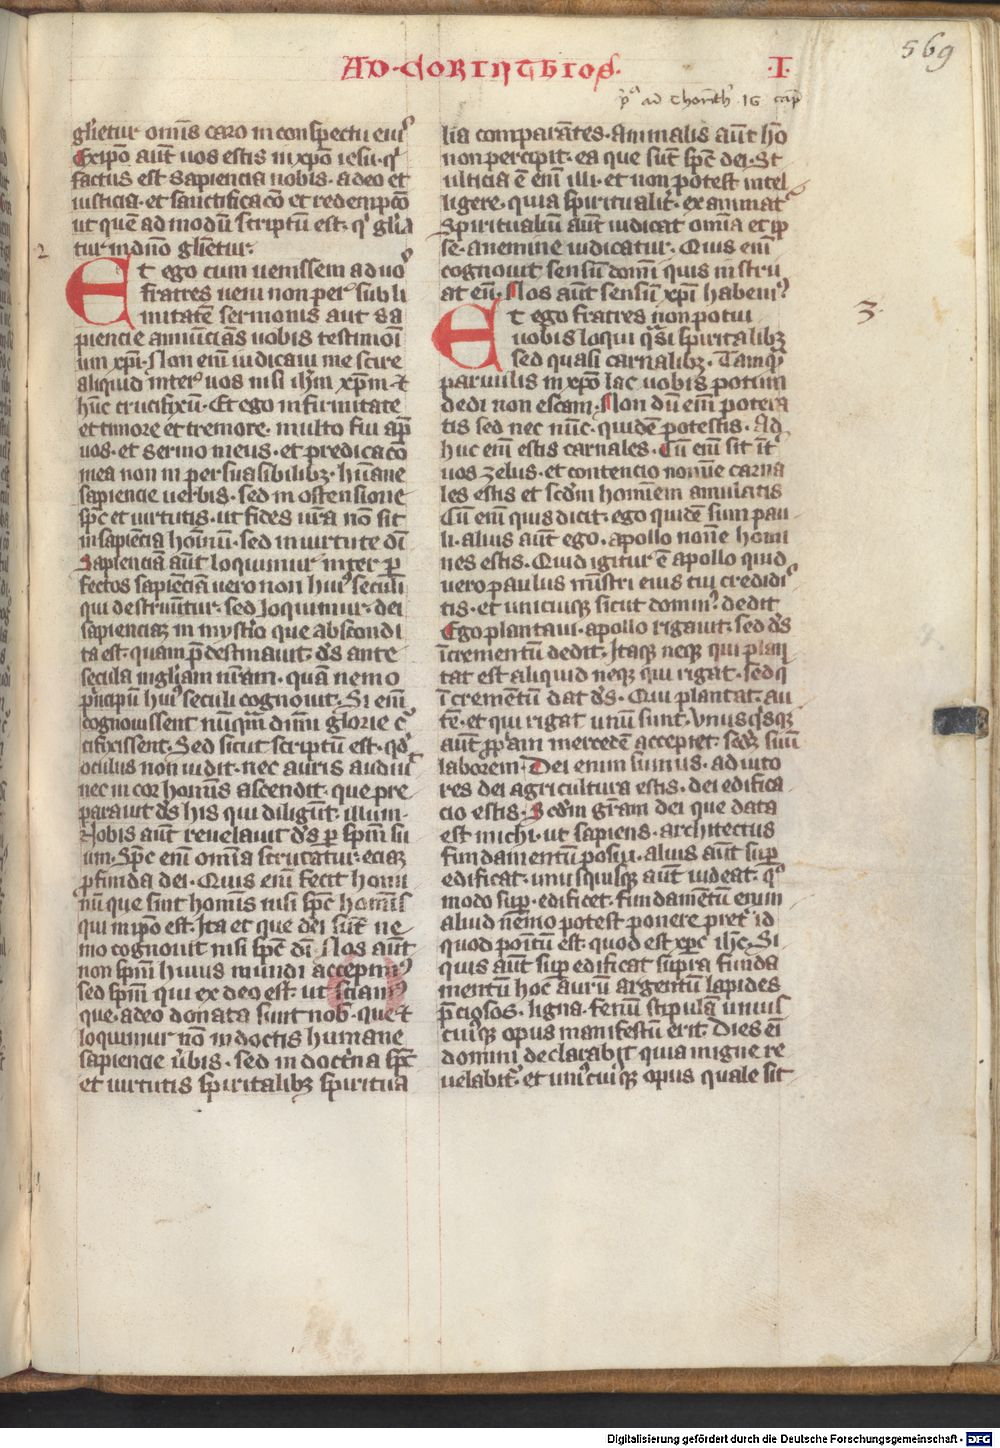 569
AD·CORINTHIOS· ·I·
p̄ᵃ ad Chorīth' 16 cap̄
gl̄ietur omīs caro in conspectu eiꝰ
Ex ip̄o aūt uos estis in xp̄o iesu· qͥ
factus est sapiencia nobis· a deo et
iusticia· et sanctificacō et redempcō
ut quē ad modū scriptū est· qͥ gl̄ia
tur in dn̄o gl̄ietur·
2
Et ego cum uenissem ad uoˢ
fratres ueni non per subli
mitatē sermonis aut sa
piencie annūciās uobis testimoī
um xp̄i· Non enī iudicaui me scire
aliquid inter uos nisi ih̄m xp̄m ⁊
hūc crucifixū· Et ego in firmitate
et timore et tremore· multo fui ap̄
uos· et sermo meus· et predicacō
mea non in persuasibilibꝫ· hūane
sapiencie uerbis· sed in ostensione
sp̄c et uirtutis· ut fides ur̄a nō sit
in sapiēcia homīnū· sed in uirtute dī
Sapienciā aūt loquimur inter ꝑ
fectos sapiēciā uero non huiꝰ seculi
qui destruūtur· sed loquimur· dei
sapienciaꝫ in mystīo que abscondi
ta est· quam p̄destinauit· d̄s ante
secula in gl̄iam nr̄am· quā nemo
pͥncipū huiꝰ seculi cognouit· Si enī
cognouissent nūqͣm dīnī glorie cͬ
cifixissent· Sed sicut scriptū est· qd̄
oculus non uidit· nec auris audiuͭ
nec in cor homīs ascendit· que pre
parauit d̄s his qui diligūt· illum·
Nobis aūt reuelauit d̄s ꝑ sp̄m su
um· Sp̄c enī omīa scrutatur· eciaꝫ
ꝓfunda dei· Quis enī fecit homi
nū que sint homīs nisi sp̄c homīs
qui in ip̄o est· Ita et que dei sūt ne
mo cognouit nisi sp̄c dī· Nos aūt
non sp̄m huius mūndi accepimꝰ
sed sp̄m qui ex deo est· ut sciamꝰ
que· a deo donata sunt nob̄· que ⁊
loquimur nō in doctis humane
sapiencie ūbis· sed in doctīna sp̄c
et uirtutis spiritalibꝫ spiritua
lia comparātes· animalis aūt ho
non percipit· ea que sūt sp̄c dei· St
ulticia ē enī illi· et non potest intel
ligere· quia spiritualit̄· examinatͬ
Spiritualium aūt iudicat omīa et ip̄
se· a nemine iudicatur· Quis enī
cognouit sensū domī quis instru
at eū· Nos aūt sensū xp̄i habemꝰ
3·
Et ego fratres non potui
uobis loqui qͣsi spiritalibꝫ
sed quasi carnalibꝫ· Tamqͣ
paruulis in xp̄o lac uobis potum
dedi non escam· Non dū enī potera
tis sed nec nūc· quidē potestis· Ad
huc enī estis carnales· Cū enī sit īt̄
uos zelus· et contencio nonne carna
les estis et scd̄m homīem amulatis
Cū enī quis dicit· ego quidē sum pau
li· alius aūt ego· apollo nonne homi
nes estis· Quid igitur ē apollo quid
uero paulus mīstri eius cui credidiˢ
tis· et unicuiqꝫ sicut domīꝰ dedit
Ego plantaui· apollo rigauit· sed d̄s
īcrementū dedit· Itaqꝫ neqꝫ qui plan
tat est aliquid neqꝫ qui rigat· sed q
īcrementū dat d̄s· Qui plantat· au
tē· et qui rigat unū sunt· Vnusqͥsqꝫ
aūt ꝓpͥam mercedē accepiet· scd̄ꝫ suū
laborem· Dei enim sumus· ad iuto
res dei agricultura estis· dei edifica
cio estis· Scd̄m gr̄am dei que data
est michi· ut sapiens· architectus
fundamentū posui· alius aūt suꝑ
edificat· unusquisqꝫ aūt uideat· qͦ
modo suꝑ· edificet· fundamētū enim
aliud nēmo potest ponere pret̄ id
quod poītū est· quod est xp̄c ih̄c· Si
quis aūt suꝑ edificat supra funda
mentū hoc aurū argentū lapides
p̄ciosos· ligna· fenū stipulā unius
cuiꝰqꝫ opus manifestū erit· Dies eī
domini declarabit quia in igne re
uelabit̄· et unīͥcuiꝰqꝫ opus quale sit
Digitalisierung gefördert durch die Deutsche Forschungsgemeinschaft - DFG